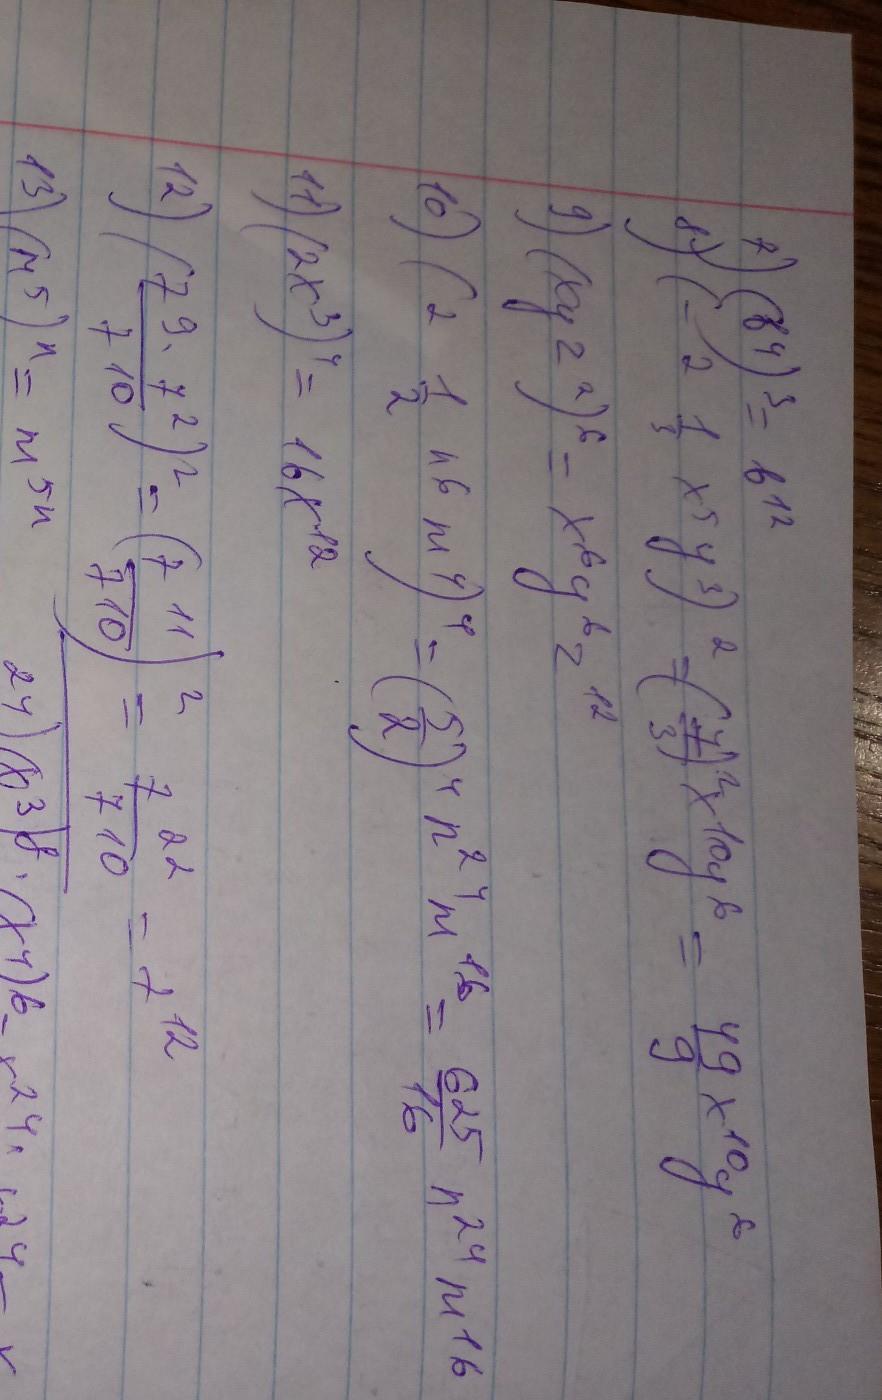 7) (b⁴)³ = b¹²
8) (-2 1/3 x⁵y³)² = (7/3)² x¹⁰y⁶ = 49/9 x¹⁰y⁶
9) (xyz²)⁶ = x⁶y⁶z¹²
10) (2 1/2 n⁶m⁴)⁴ = (5/2)⁴ n²⁴m¹⁶ = 625/16 n²⁴m¹⁶
11) (2x³)⁴ = 16x¹²
12) (7⁹·7²/7¹⁰)² = (7¹¹/7¹⁰)² = 7²²/7¹⁰ = 7¹²
13) (m⁵)ⁿ = m⁵ⁿ
24) (x³)⁸·(x⁴)⁶ = x²⁴·x²⁴ = x